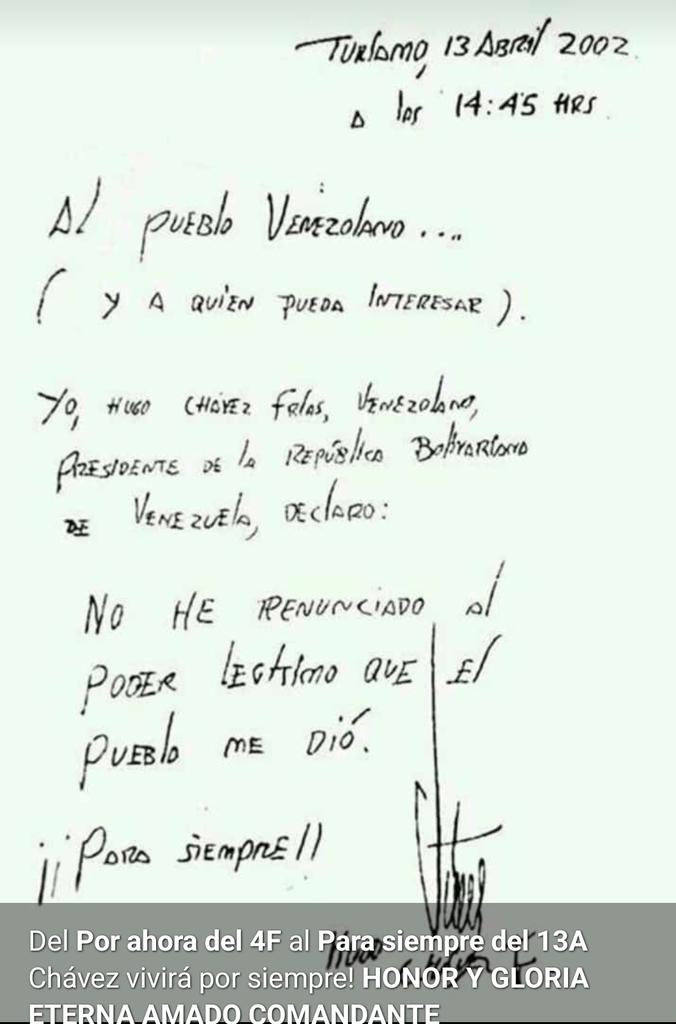 Turiamo, 13 Abril 2002
a las 14:45 HRS
Al pueblo Venezolano....
(y a quien pueda interesar).
Yo, Hugo Chávez Frías, Venezolano,
Presidente de la República Bolivariana
de Venezuela, declaro:
No he renunciado al
poder legítimo que el
pueblo me dió.
¡¡Para siempre!!
Hugo Chávez F
Del Por ahora del 4F al Para siempre del 13A
Chávez vivirá por siempre! HONOR Y GLORIA
ETERNA AMADO COMANDANTE